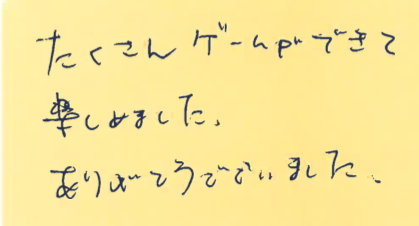 たくさんゲームができて
楽しめました。
ありがとうございました。